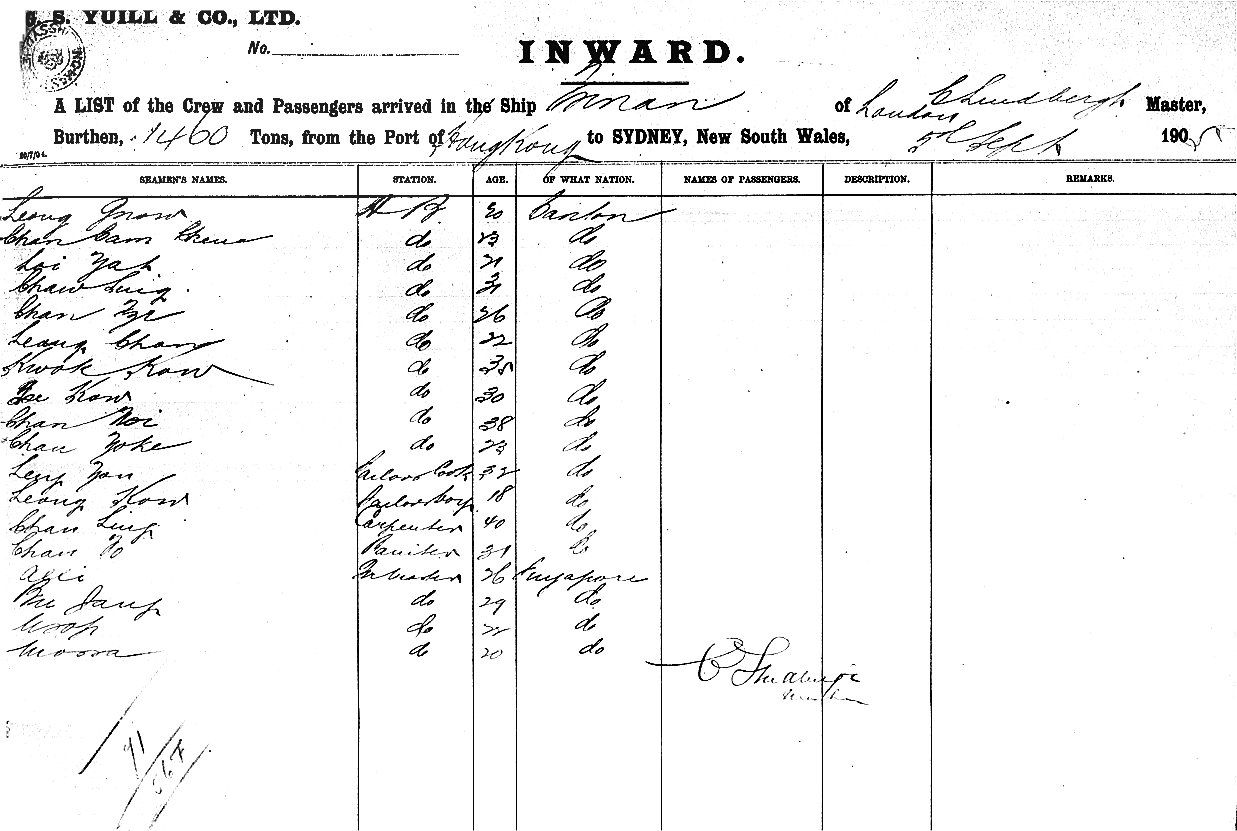 G. S. YUILL & CO., LTD.
No.
INWARD.
A LIST of the Crew and Passengers arrived in the Ship Tsinan of London C Lindbergh Master,
Burthen, 1460 Tons, from the Port of Hong Kong to SYDNEY, New South Wales, 5th Sept 1905
20/7/04.
SEAMEN'S NAMES. STATION. AGE. OF WHAT NATION. NAMES OF PASSENGERS. DESCRIPTION. REMARKS.
Leong 30 Canton
Chan Cam do 23 do
Loi Yat do 21 do
Chaw Ling do 31 do
Chan do 26 do
Leong Chong do 22 do
Kwok Kow do 35 do
Kow do 30 do
Chan Noi do 38 do
Chan Yoke do 23 do
Yon Sailors Cook 32 do
Leong Kow Sailors boy 18 do
Chan Ling Carpenter 40 do
Chan Painter 31 do
Alli 26 Singapore
do 29 do
Usop do 22 do
Moosa do 20 do
C Lindbergh
Master
91
567